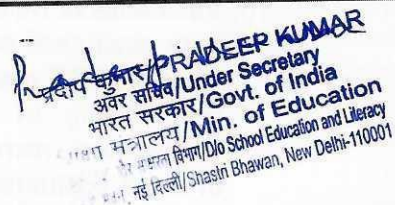 प्रदीप कुमार/PRADEEP KUMAR
अवर सचिव/Under Secretary
भारत सरकार/Govt. of India
मंत्रालय/Min. of Education
विभाग/D/o School Education and Literacy
नई दिल्ली/Shastri Bhawan, New Delhi-110001